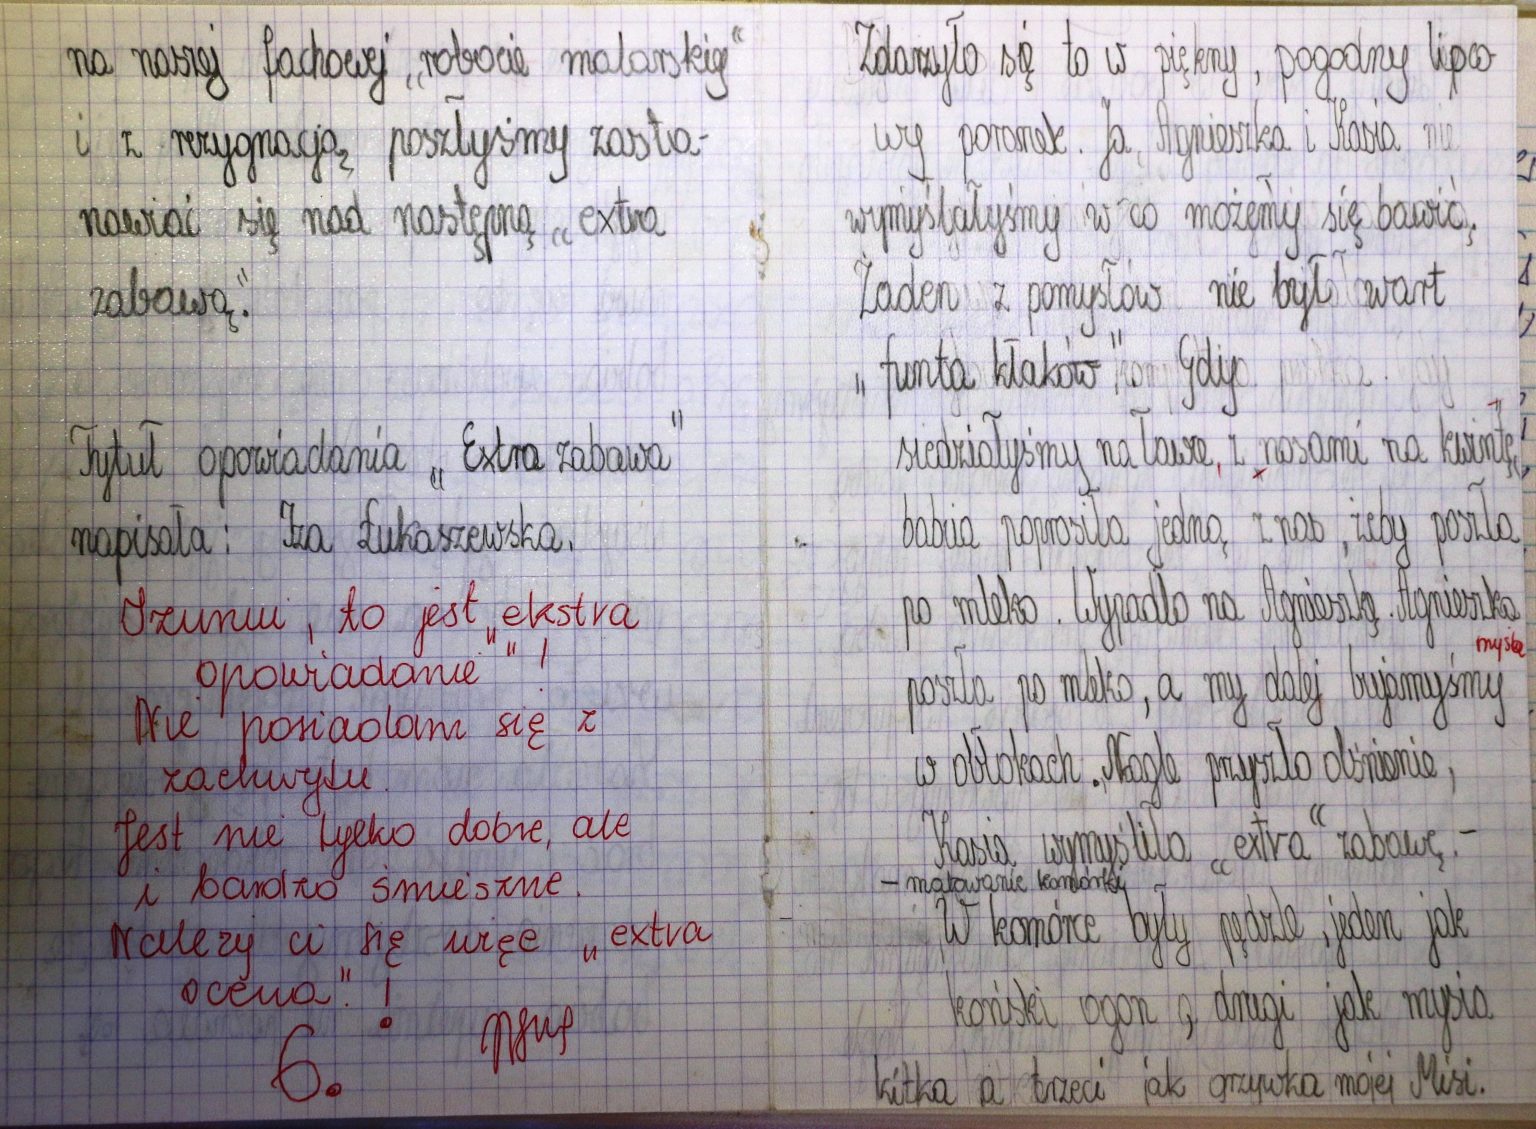 na naszej fachowej „robocie malarskiej“
i z rezygnacją poszłyśmy zasta-
nawiać się nad następną „extra
zabawą."
Tytuł opowiadania „Extra zabawa"
napisała: Iza Łukaszewska.
Izuniu, to jest „ekstra
opowiadanie"!
Nie posiadam się z
zachwytu.
Jest nie tylko dobre, ale
i bardzo śmieszne.
Należy ci się więc „extra
ocena"!
6.
Zdarzyło się to w piękny, pogodny lipco
wy poranek. Ja, Agnieszka i Kasia
wymyślałyśmy w co możemy się bawić.
Żaden z pomysłów nie był wart
„funta kłaków". Gdy
siedziałyśmy na ławce, z nosami na kwintę,
babcia poprosiła jedną z nas, żeby poszła
po mleko. Wypadło na Agnieszkę. Agnieszka
myśla
poszła po mleko, a my dalej bujamyśmy
w obłokach. Nagle przyszło olśnienie,
Kasia wymyśliła „extra“ zabawę. -
- malowanie komórki
W komórce były pędzle, jeden jak
koński ogon, drugi jak mysia
kitka a trzeci jak grzywka mojej Misi.